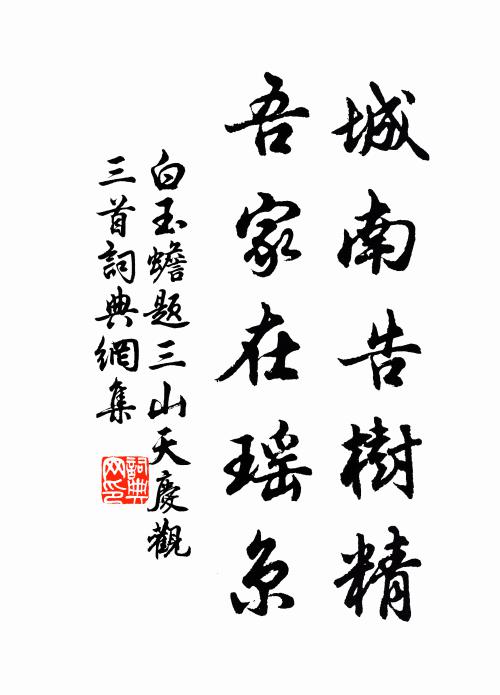 城南告樹精
吾家在瑶京
白玉蟾題三山天慶觀
三首詞典網集
詞典
网印